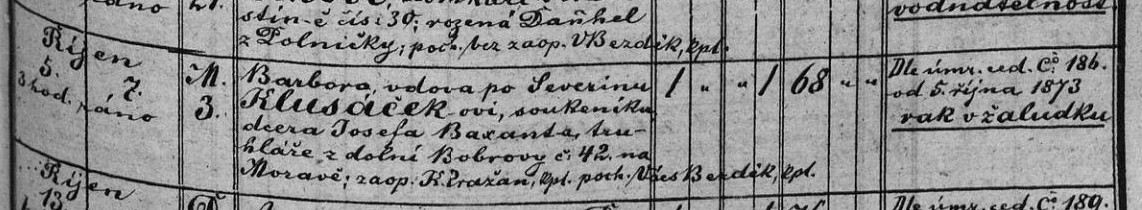 stin-ě čís: 39; rozená Daňhel
z Polničky; poch. bez zaop. V Bezděk, kpl.
vodnatelnost.
Říjen
5. 7.
3 hod. ráno
M.
3.
Barbora, vdova po Severinu
Klusáček-ovi, soukeníku,
dcera Josefa Baxanta, tru-
hláře z dolní Bobrovy č: 42. na
Moravě; zaop. K Pražan, kpl. poch. Bezděk, kpl.
1 " " 1 68 " "
Dle úmr. ced. Čo: 186.
od 5. října 1873
rak v žaludku
Říjen
13
Dle úmr. ced. Čo: 189.